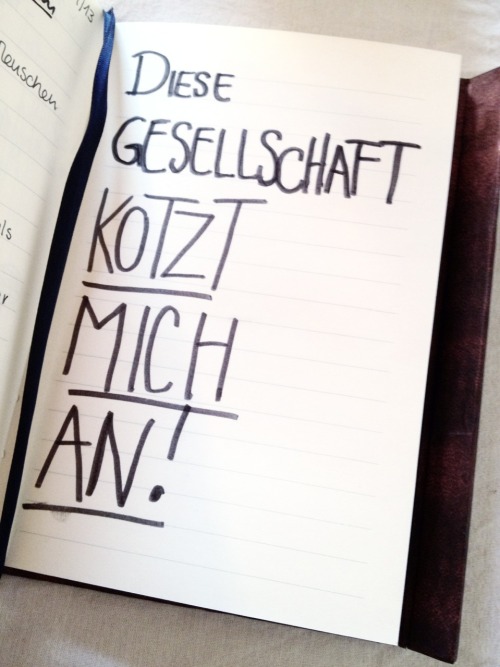 1/13
Menschen
DIESE
GESELLSCHAFT
KOTZT
MICH
AN!